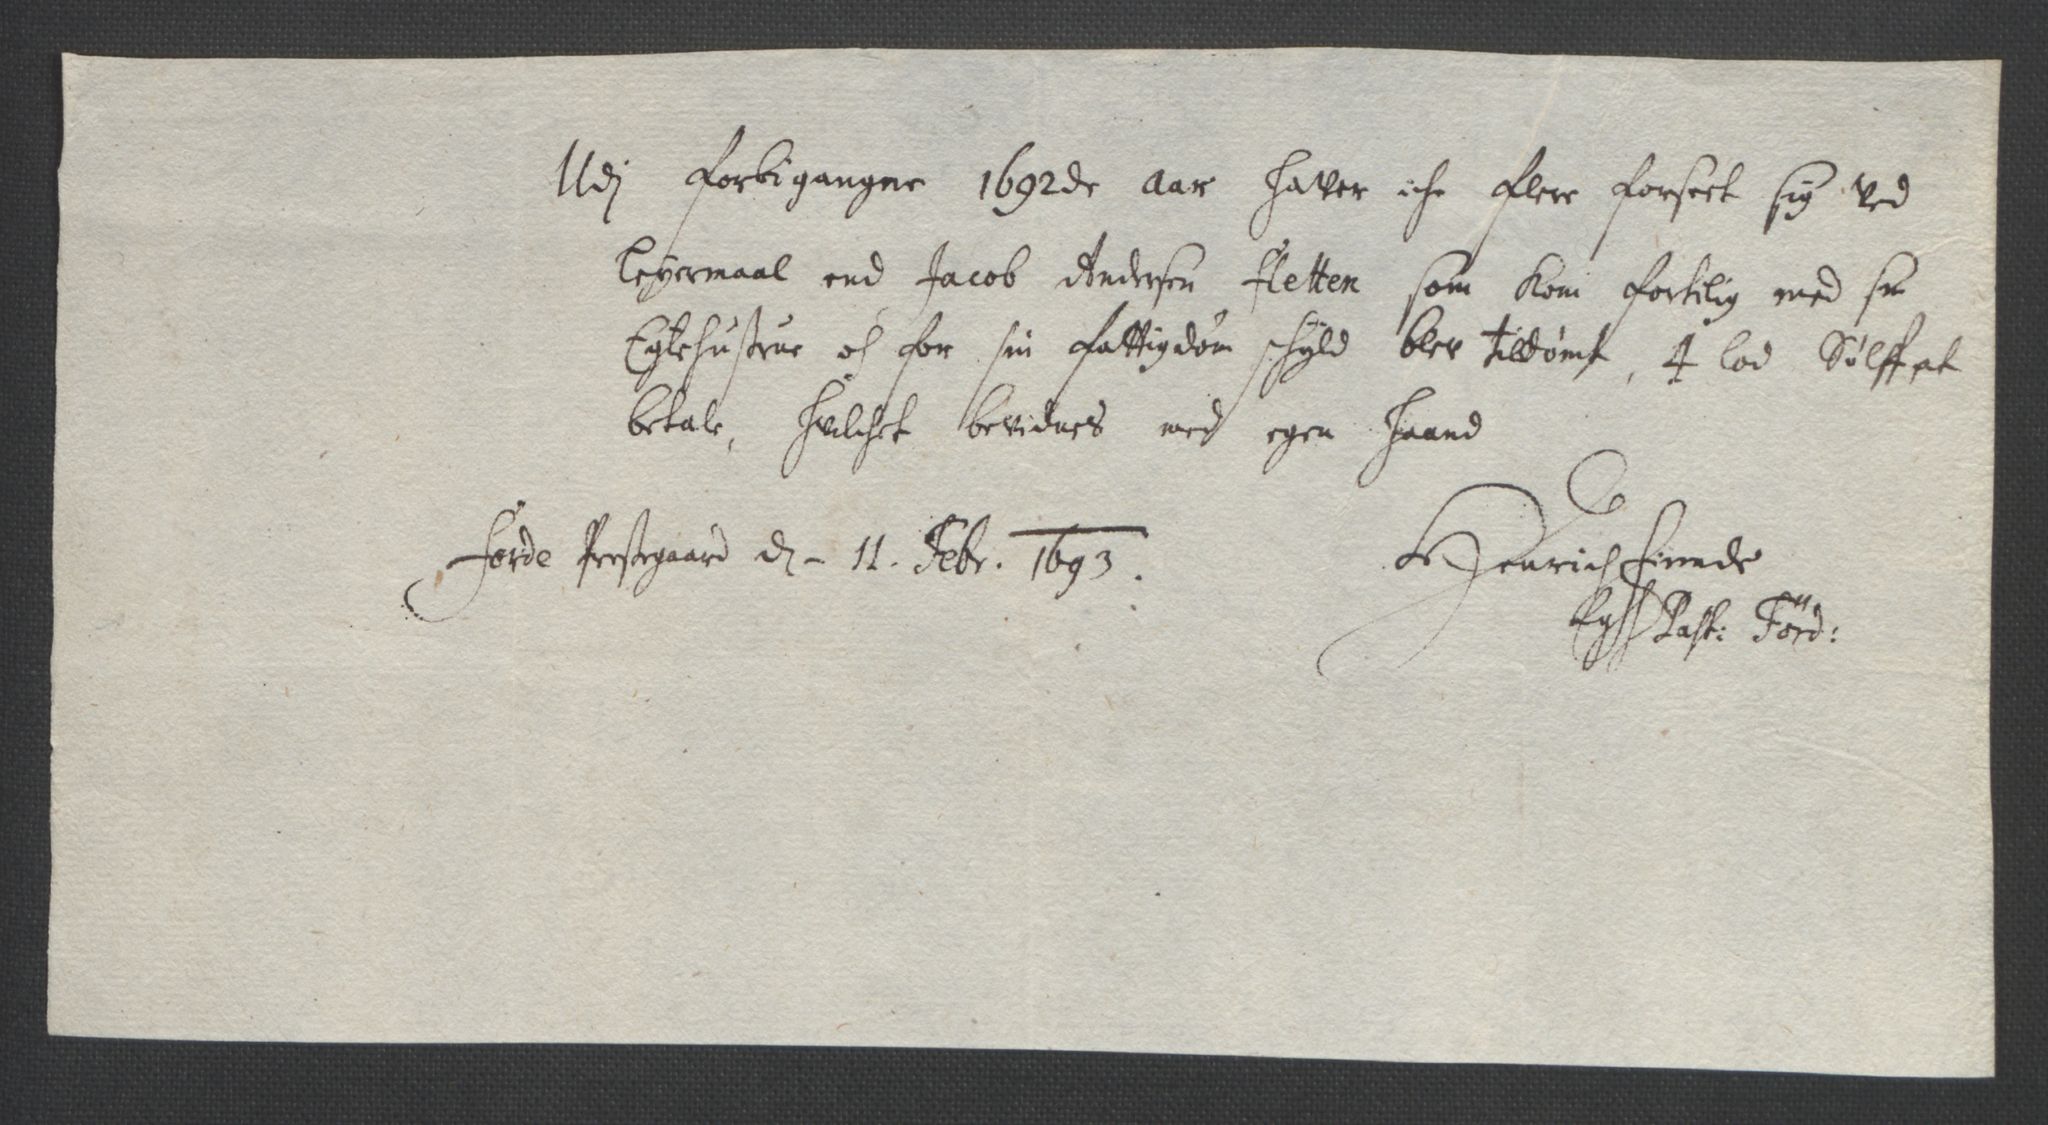 Udj forbigangne 1692de aar haver iche flere forseet sig ved
Leyermaal end Jacob Andersen Fletten som kom fortilig med sin
Egtehustrue och for sin fattigdom schyld blev tildømt, 4 lod Sølff at
betale, hvilchet bevidnes med egen haand
Førde Prestegaard d - 11. Febr. 1693.
Henrich Finnde
Past: Förd: